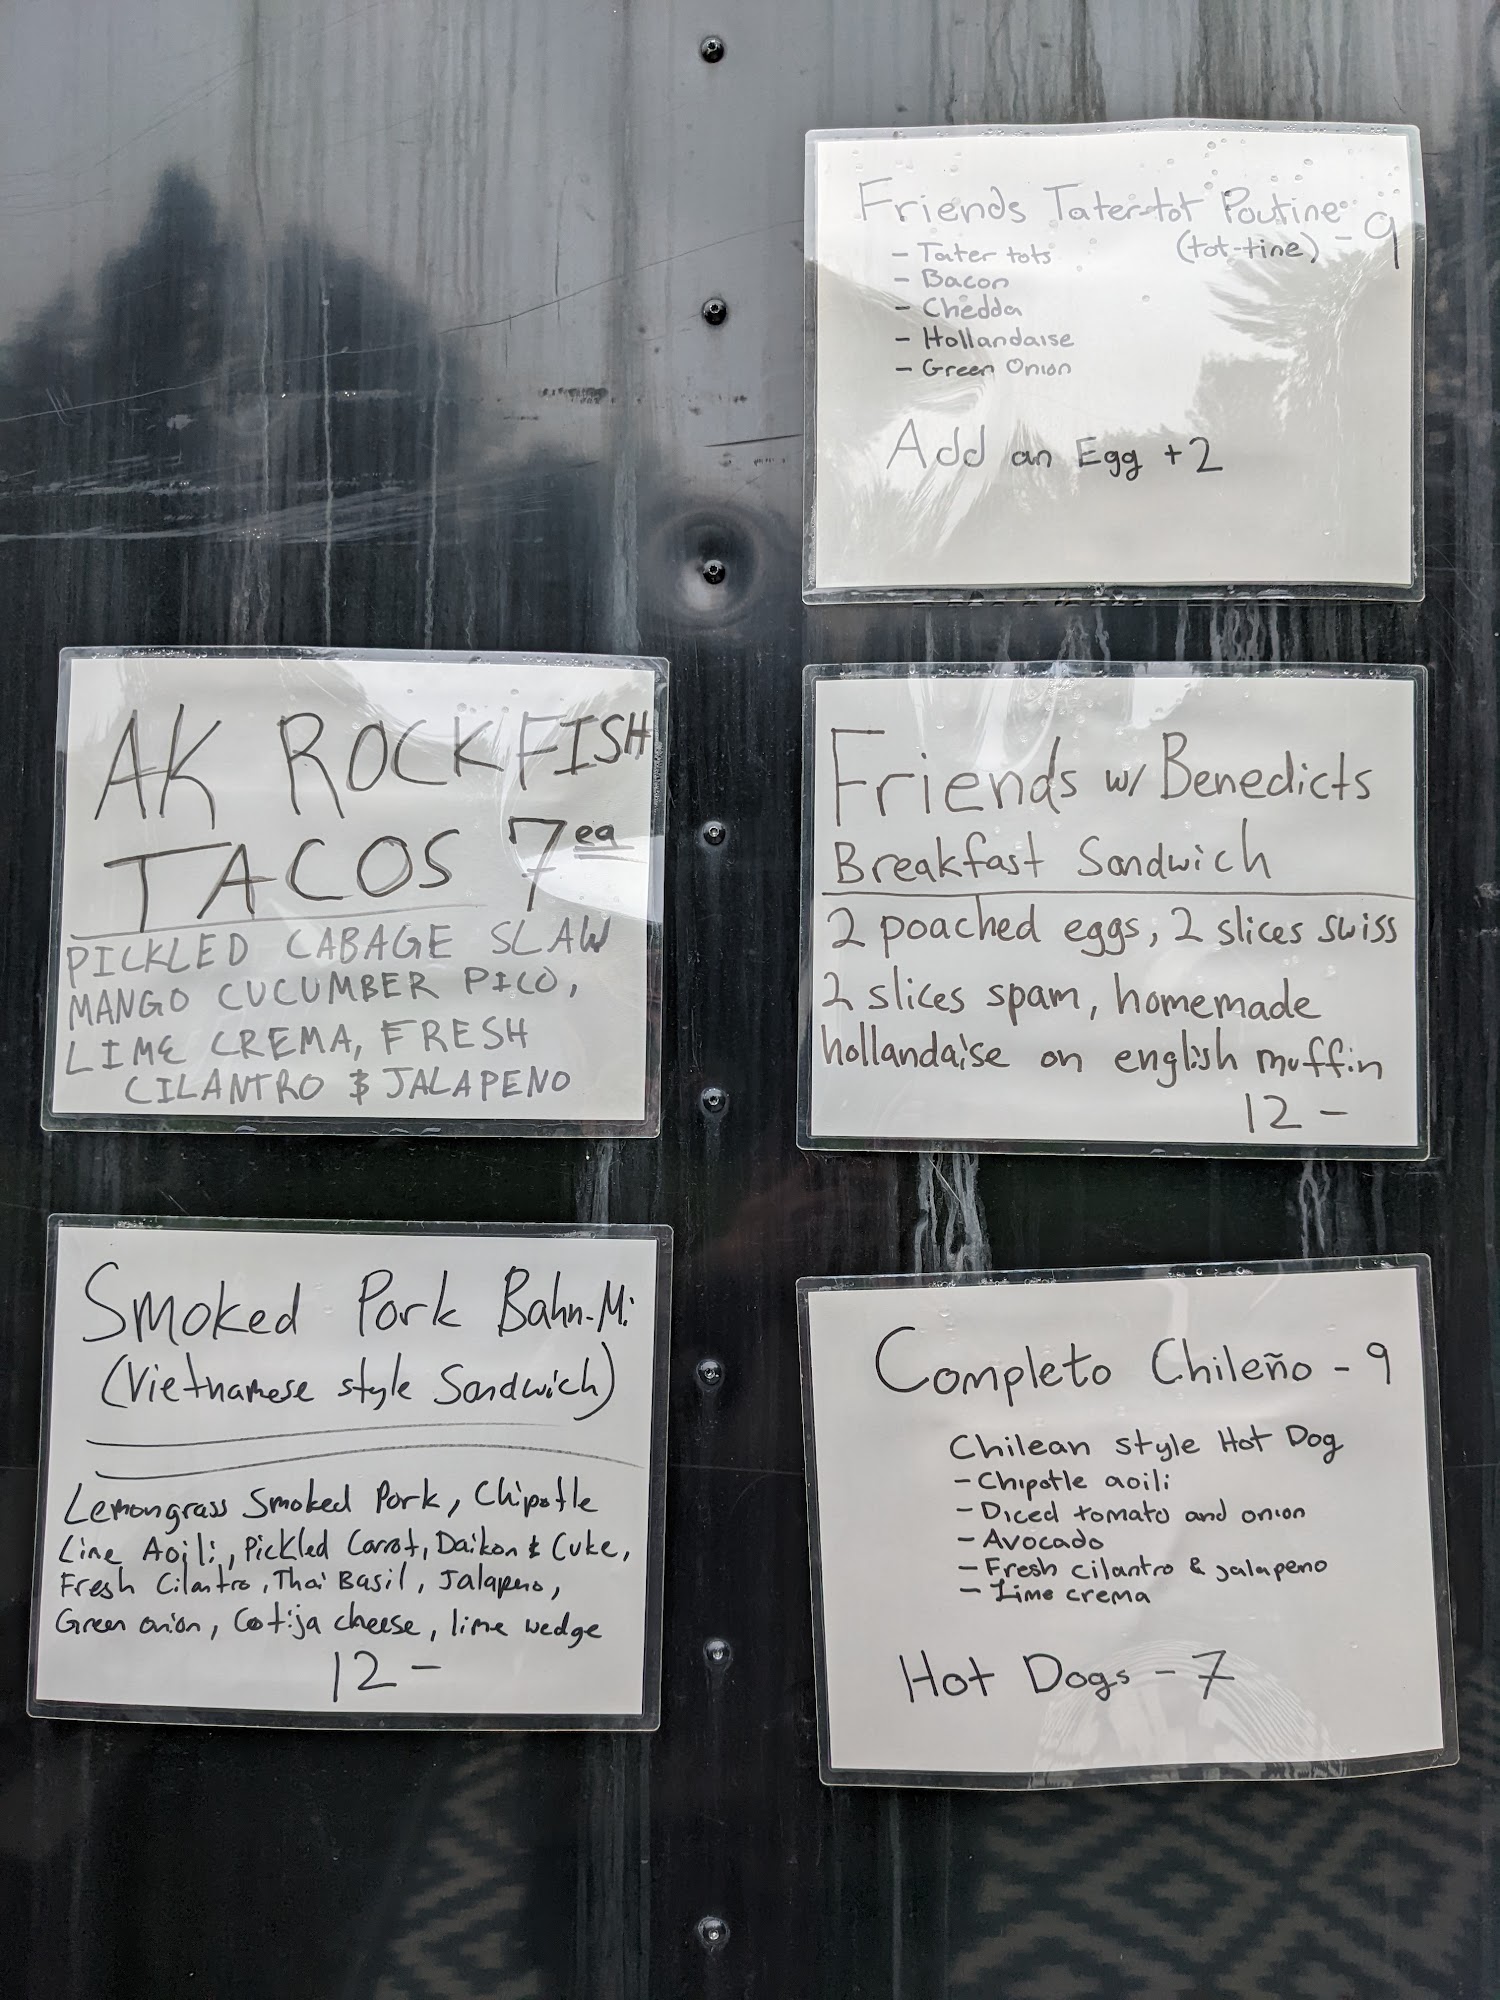 Friends Tater-tot Poutine
(tot-tine) - 9
- Tater tots
- Bacon
- Chedda
- Hollandaise
- Green Onion
Add an Egg +2
AK ROCKFISH
TACOS 7 ea
PICKLED CABAGE SLAW
MANGO CUCUMBER PICO,
LIME CREMA, FRESH
CILANTRO & JALAPENO
Friends w/ Benedicts
Breakfast Sandwich
2 poached eggs, 2 slices swiss
2 slices spam, homemade
hollandaise on english muffin
12 -
Smoked Pork Bahn-Mi
(Vietnamese style Sandwich)
Lemongrass Smoked Pork, Chipotle
Lime Aoili, Pickled Carrot, Daikon & Cuke,
Fresh Cilantro, Thai Basil, Jalapeno,
Green onion, Cotija cheese, lime wedge
12 -
Completo Chileño - 9
Chilean style Hot Dog
- Chipotle aoili
- Diced tomato and onion
- Avocado
- Fresh cilantro & jalapeno
- Lime crema
Hot Dogs - 7